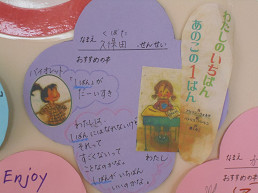 くぼた
なまえ 久保田 せんせい
おすすめの本
バイオレット
「1ばん」が
だーいすき
わたしは
1ばんにはなれないけど
それって
すごくないって
ことなのかな。
1ばんがいちばん
いいのかな。
わたしのいちばん
あのこの1ばん
わたし
なまえ
おすすめの
Enjoy